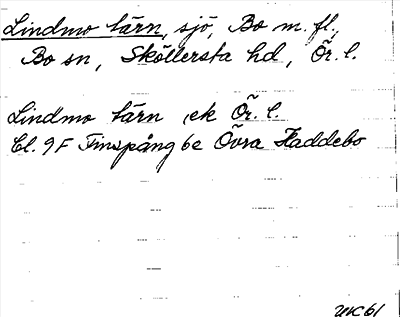 Lindmo tärn, sjö, Bo m. fl.,
Bo sn, Sköllersta hd, Ör. l.
Lindmo tärn, ek Ör. l.
Bl. 9F Finspång 6e Övra Haddebo
UK61